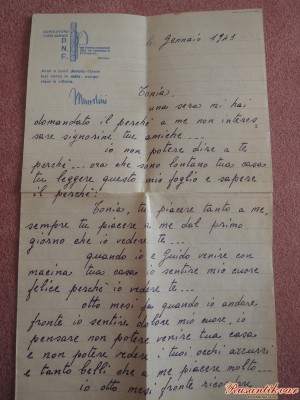 DOPOLAVORO
FORZE ARMATE
P.N.F.
Mussolini
Gennaio 1941
Tonia,
una sera mi hai
domandato il perchè a me non interes=
sare signorine tue amiche...
io non potere dire a te
perchè... ora che sono lontano tua casa
tu leggere questo mio foglio e sapere
il perchè:
Tonia, tu piacere tanto a me,
sempre tu piacere a me dal primo
giorno che io vedere te...
quando io e Guido venire con
macina tua casa io sentire mio cuore
felice perchè io vedere te...
otto mesi fa quando io andare
fronte io sentire dolore mio cuore, io
pensare non potere venire tua casa
e non potere vedere i tuoi occhi azzurri
e tanto belli che a me piacere molto...
io otto mesi fronte
Rusantikvar